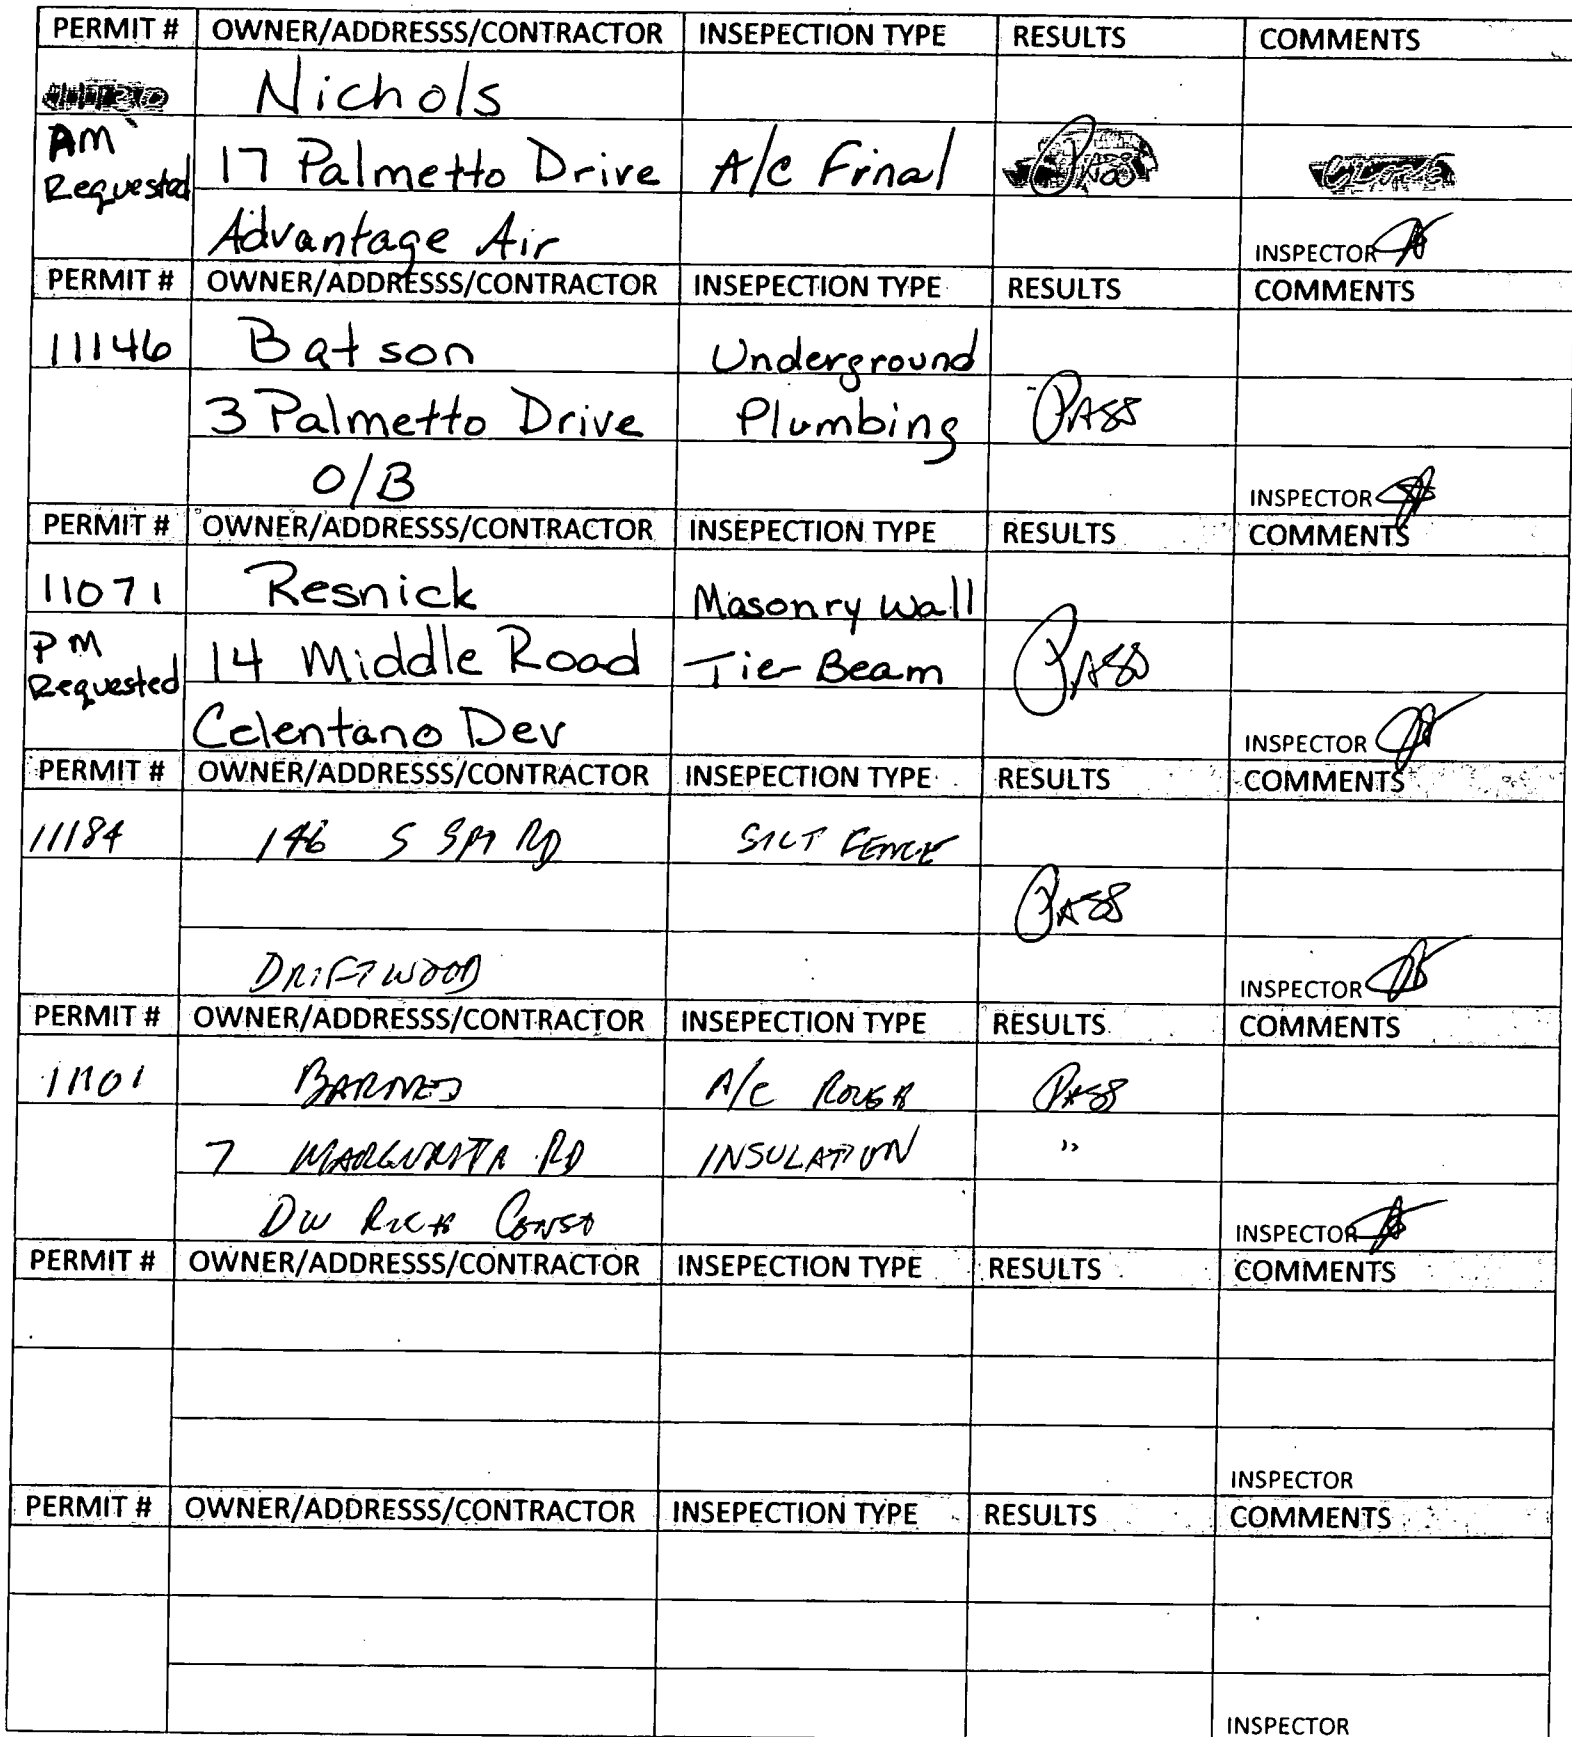 PERMIT # OWNER/ADDRESSS/CONTRACTOR INSEPECTION TYPE RESULTS COMMENTS
Nichols
AM Requested 17 Palmetto Drive A/C Final Pass
Advantage Air INSPECTOR
PERMIT # OWNER/ADDRESSS/CONTRACTOR INSEPECTION TYPE RESULTS COMMENTS
11146 Batson Underground
3 Palmetto Drive Plumbing PASS
O/B INSPECTOR
PERMIT # OWNER/ADDRESSS/CONTRACTOR INSEPECTION TYPE RESULTS COMMENTS
11071 Resnick Masonry Wall
PM Requested 14 Middle Road Tie Beam PASS
Celentano Dev INSPECTOR
PERMIT # OWNER/ADDRESSS/CONTRACTOR INSEPECTION TYPE RESULTS COMMENTS
11184 146 S SPt RD SILT FENCE
PASS
DRIFTWOOD INSPECTOR
PERMIT # OWNER/ADDRESSS/CONTRACTOR INSEPECTION TYPE RESULTS COMMENTS
BARNES A/C ROUGH PASS
7 MARGURITA RD INSULATION "
DW RICH CONST INSPECTOR
PERMIT # OWNER/ADDRESSS/CONTRACTOR INSEPECTION TYPE RESULTS COMMENTS
INSPECTOR
PERMIT # OWNER/ADDRESSS/CONTRACTOR INSEPECTION TYPE RESULTS COMMENTS
INSPECTOR